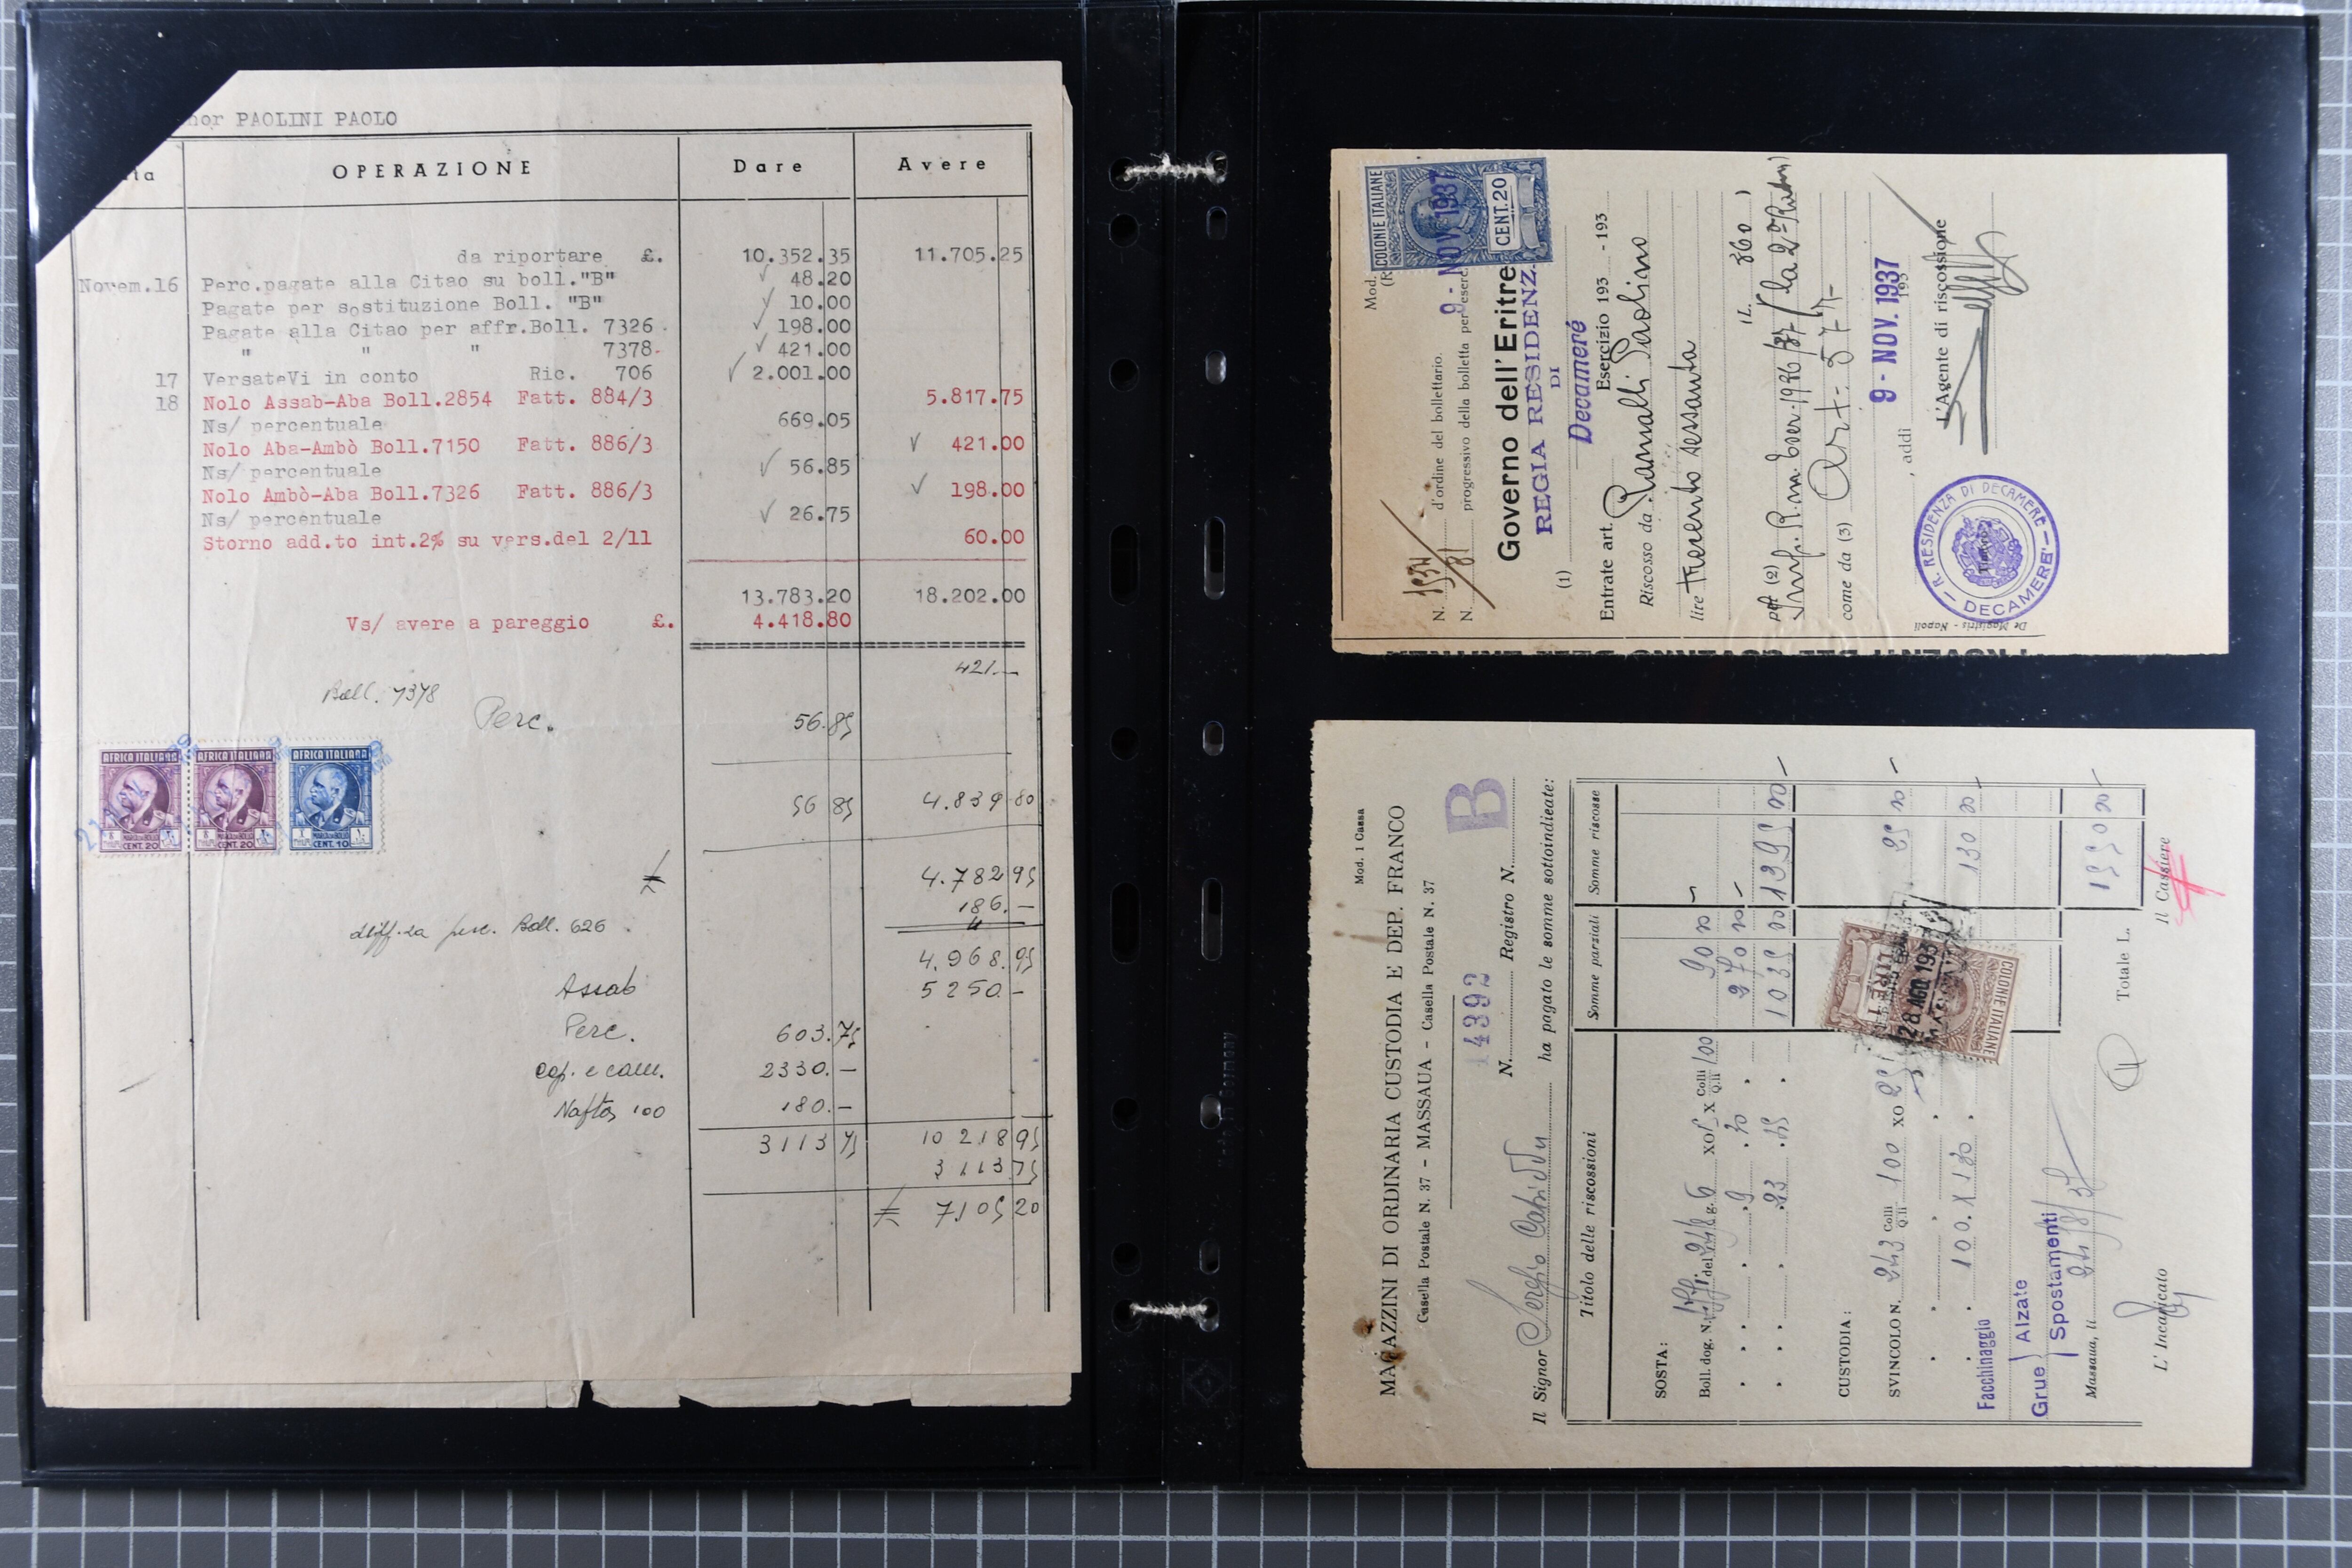 nor PAOLINI PAOLO
ta OPERAZIONE Dare Avere
da riportare £. 10.352.35 11.705.25
Novem.16 Perc.pagate alla Citao su boll."B" 48.20
Pagate per sostituzione Boll. "B" 10.00
Pagate alla Citao per affr.Boll. 7326 198.00
" " " 7378 421.00
17 VersateVi in conto Ric. 706 2.001.00
18 Nolo Assab-Aba Boll.2854 Fatt. 884/3 5.817.75
Ns/ percentuale 669.05
Nolo Aba-Ambò Boll.7150 Fatt. 886/3 421.00
Ns/ percentuale 56.85
Nolo Ambò-Aba Boll.7326 Fatt. 886/3 198.00
Ns/ percentuale 26.75
Storno add.to int.2% su vers.del 2/11 60.00
13.783.20 18.202.00
Vs/ avere a pareggio £. 4.418.80
421.—
Boll. 7378
Perc. 56.85
AFRICA ITALIANA AFRICA ITALIANA AFRICA ITALIANA
MARCA DA BOLLO MARCA DA BOLLO MARCA DA BOLLO
CENT. 20 CENT. 20 CENT. 10
56 85 4.839 80
4.782 95
186.—
diff.za perc. Boll. 626
4.968.95
Assab 5250.—
Perc. 603.75
2330.—
Nafta 100 180.—
3113 75 10 218 95
3 113 75
7.105 20
COLONIE ITALIANE
CENT.20
9 - NOV. 1937
Mod.
N. d'ordine del bollettario.
N. 81 progressivo della bolletta per eserc.
Governo dell'Eritrea
REGIA RESIDENZA
DI
(1) Decameré
Entrate art. Esercizio 193 - 193
Riscosso da Paolino
lire trecento sessanta (L. 360)
per (2)
come da (3) Art. 577
9 - NOV. 1937
, addì 193
L'Agente di riscossione
R. RESIDENZA DI DECAMERE'
— DECAMERE' —
De Magistris - Napoli
PROVENTI DEL GOVERNO DELL'ERITREA
Mod. 1 Cassa
MAGAZZINI DI ORDINARIA CUSTODIA E DEP. FRANCO
Casella Postale N. 37 - MASSAUA - Casella Postale N. 37
14392 B
N. Registro N.
Il Signor Sergio ha pagato le somme sottoindicate:
Titolo delle riscossioni Somme parziali Somme riscosse
SOSTA:
Boll. dog. N. del g. 6 X Colli Q.li 100 90 00
9 . 30 270 00
23 . 45 1035 00 1395 00
CUSTODIA:
SVINCOLO N. 243 Colli Q.li 100 XO 25 25 00
Facchinaggio 100 X 130 130 00
COLONIE ITALIANE
LIRE 1
28 AGO 193
MASSAUA
Grue Alzate
Spostamenti
Massaua, li Totale L. 1550 00
L' Incaricato Il Cassiere